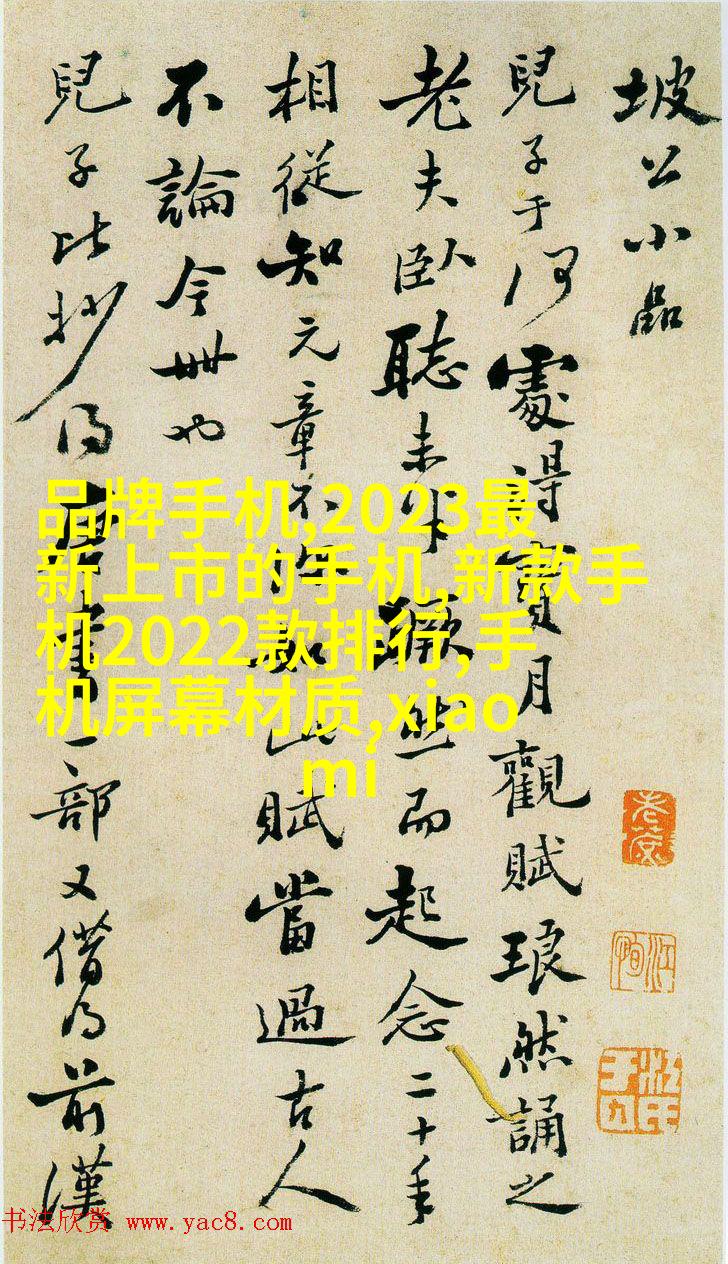 坡公小品
兒子于何處得寶月觀賦琅然誦之
老夫臥聽未半蹶然而起念二十年
相從知元章不如此賦當過古人
不論今世也
兒子比抄得唐書一部又借得前漢
品牌手机,2023最
新上市的手机,新款手
机2022款排行,手
机屏幕材质,xiao
mi
书法欣赏 www.yac8.com